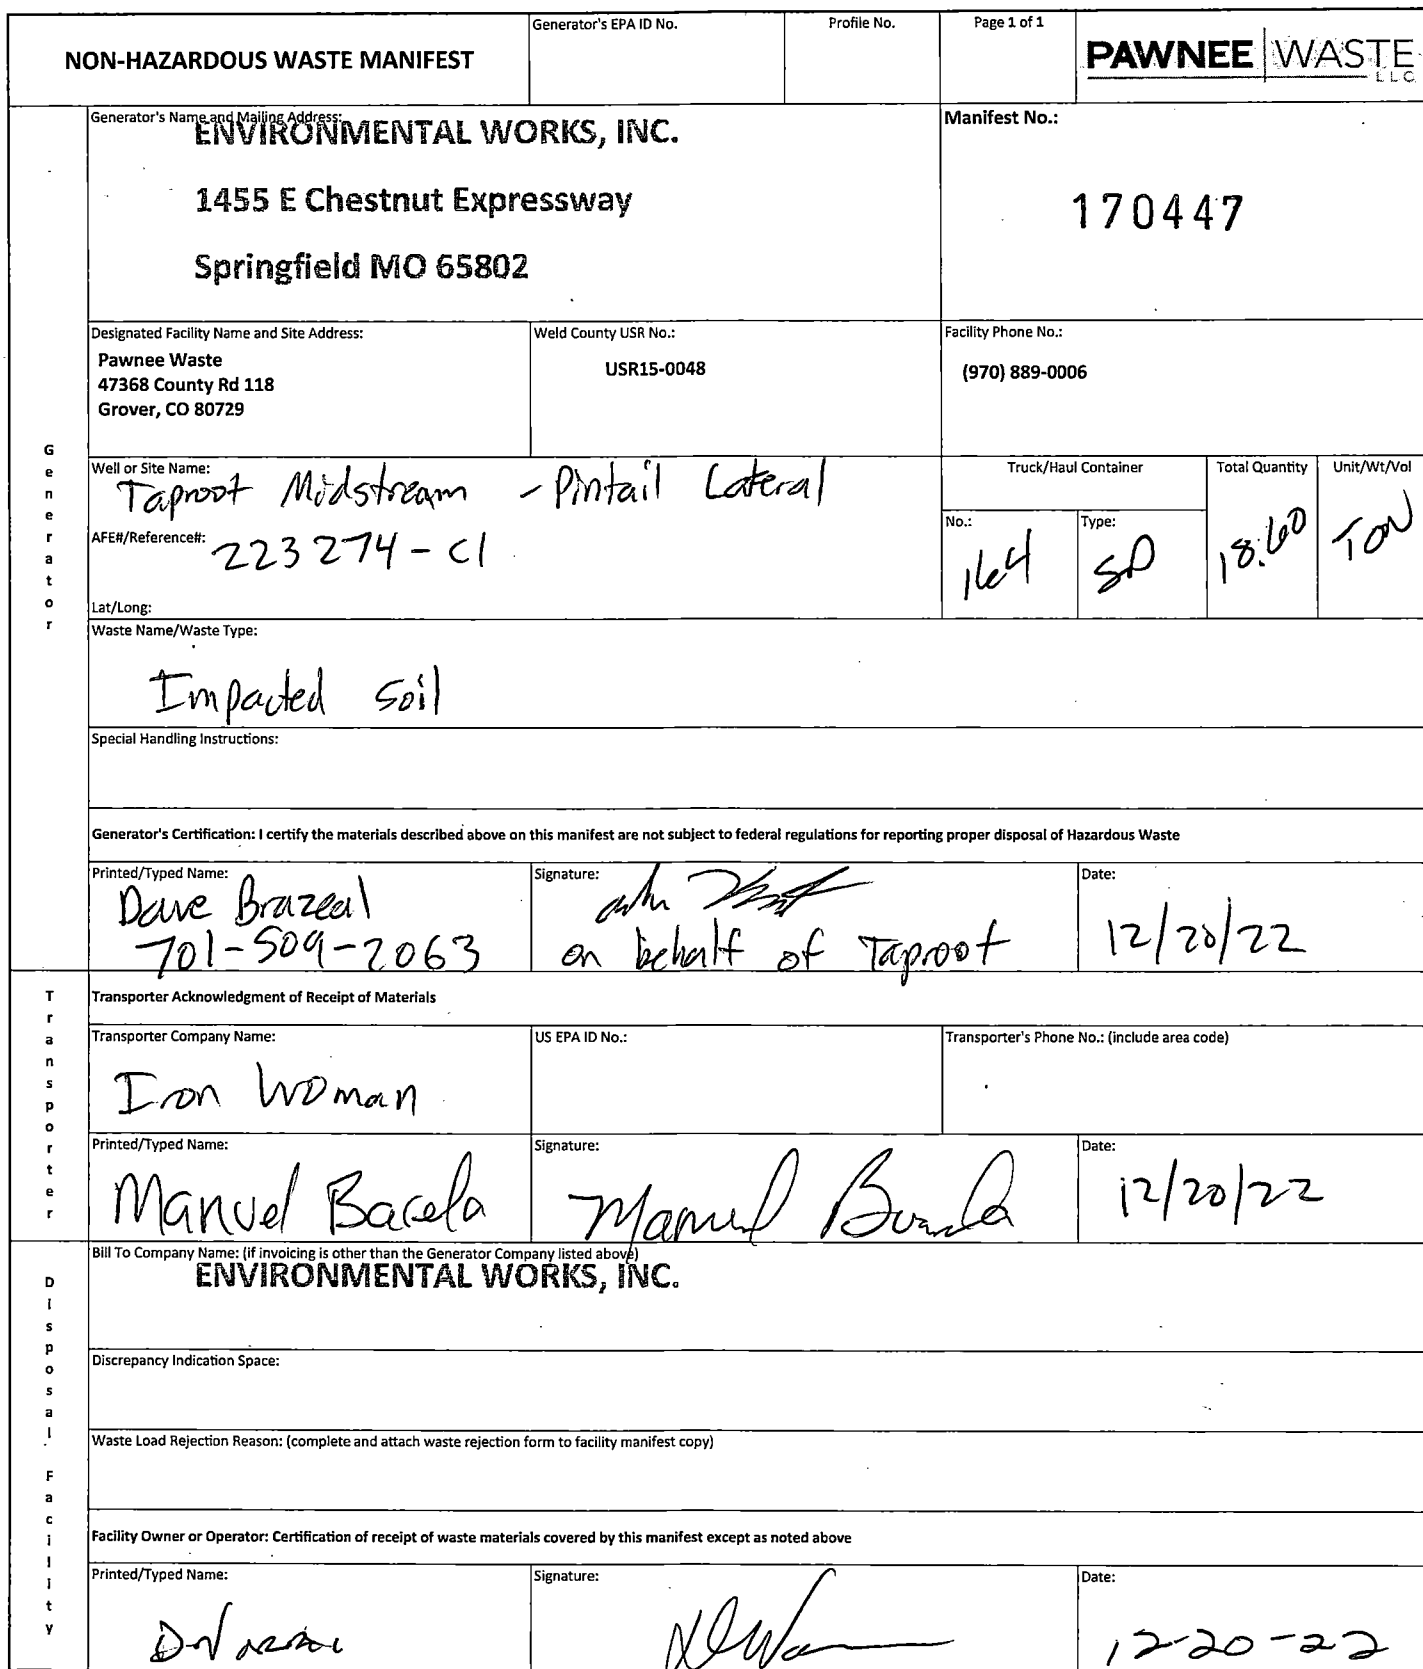 NON-HAZARDOUS WASTE MANIFEST
Generator's EPA ID No.
Profile No.
Page 1 of 1
PAWNEE WASTE
LLC
Generator's Name and Mailing Address:
ENVIRONMENTAL WORKS, INC.
1455 E Chestnut Expressway
Springfield MO 65802
Manifest No.:
170447
Designated Facility Name and Site Address:
Pawnee Waste
47368 County Rd 118
Grover, CO 80729
Weld County USR No.:
USR15-0048
Facility Phone No.:
(970) 889-0006
Generator
Well or Site Name:
Taproot Midstream - Pintail Lateral
AFE#/Reference#: 223274-C1
Lat/Long:
Truck/Haul Container
No.:
164
Type:
SD
Total Quantity
18.60
Unit/Wt/Vol
TON
Waste Name/Waste Type:
Impacted Soil
Special Handling Instructions:
Generator's Certification: I certify the materials described above on this manifest are not subject to federal regulations for reporting proper disposal of Hazardous Waste
Printed/Typed Name:
Dave Brazeal
701-509-2063
Signature:
on behalf of Taproot
Date:
12/20/22
Transporter
Transporter Acknowledgment of Receipt of Materials
Transporter Company Name:
Iron Woman
US EPA ID No.:
Transporter's Phone No.: (include area code)
Printed/Typed Name:
Manuel Bacela
Signature:
Manuel
Date:
12/20/22
Disposal Facility
Bill To Company Name: (if invoicing is other than the Generator Company listed above)
ENVIRONMENTAL WORKS, INC.
Discrepancy Indication Space:
Waste Load Rejection Reason: (complete and attach waste rejection form to facility manifest copy)
Facility Owner or Operator: Certification of receipt of waste materials covered by this manifest except as noted above
Printed/Typed Name:
Signature:
Date:
12-20-22